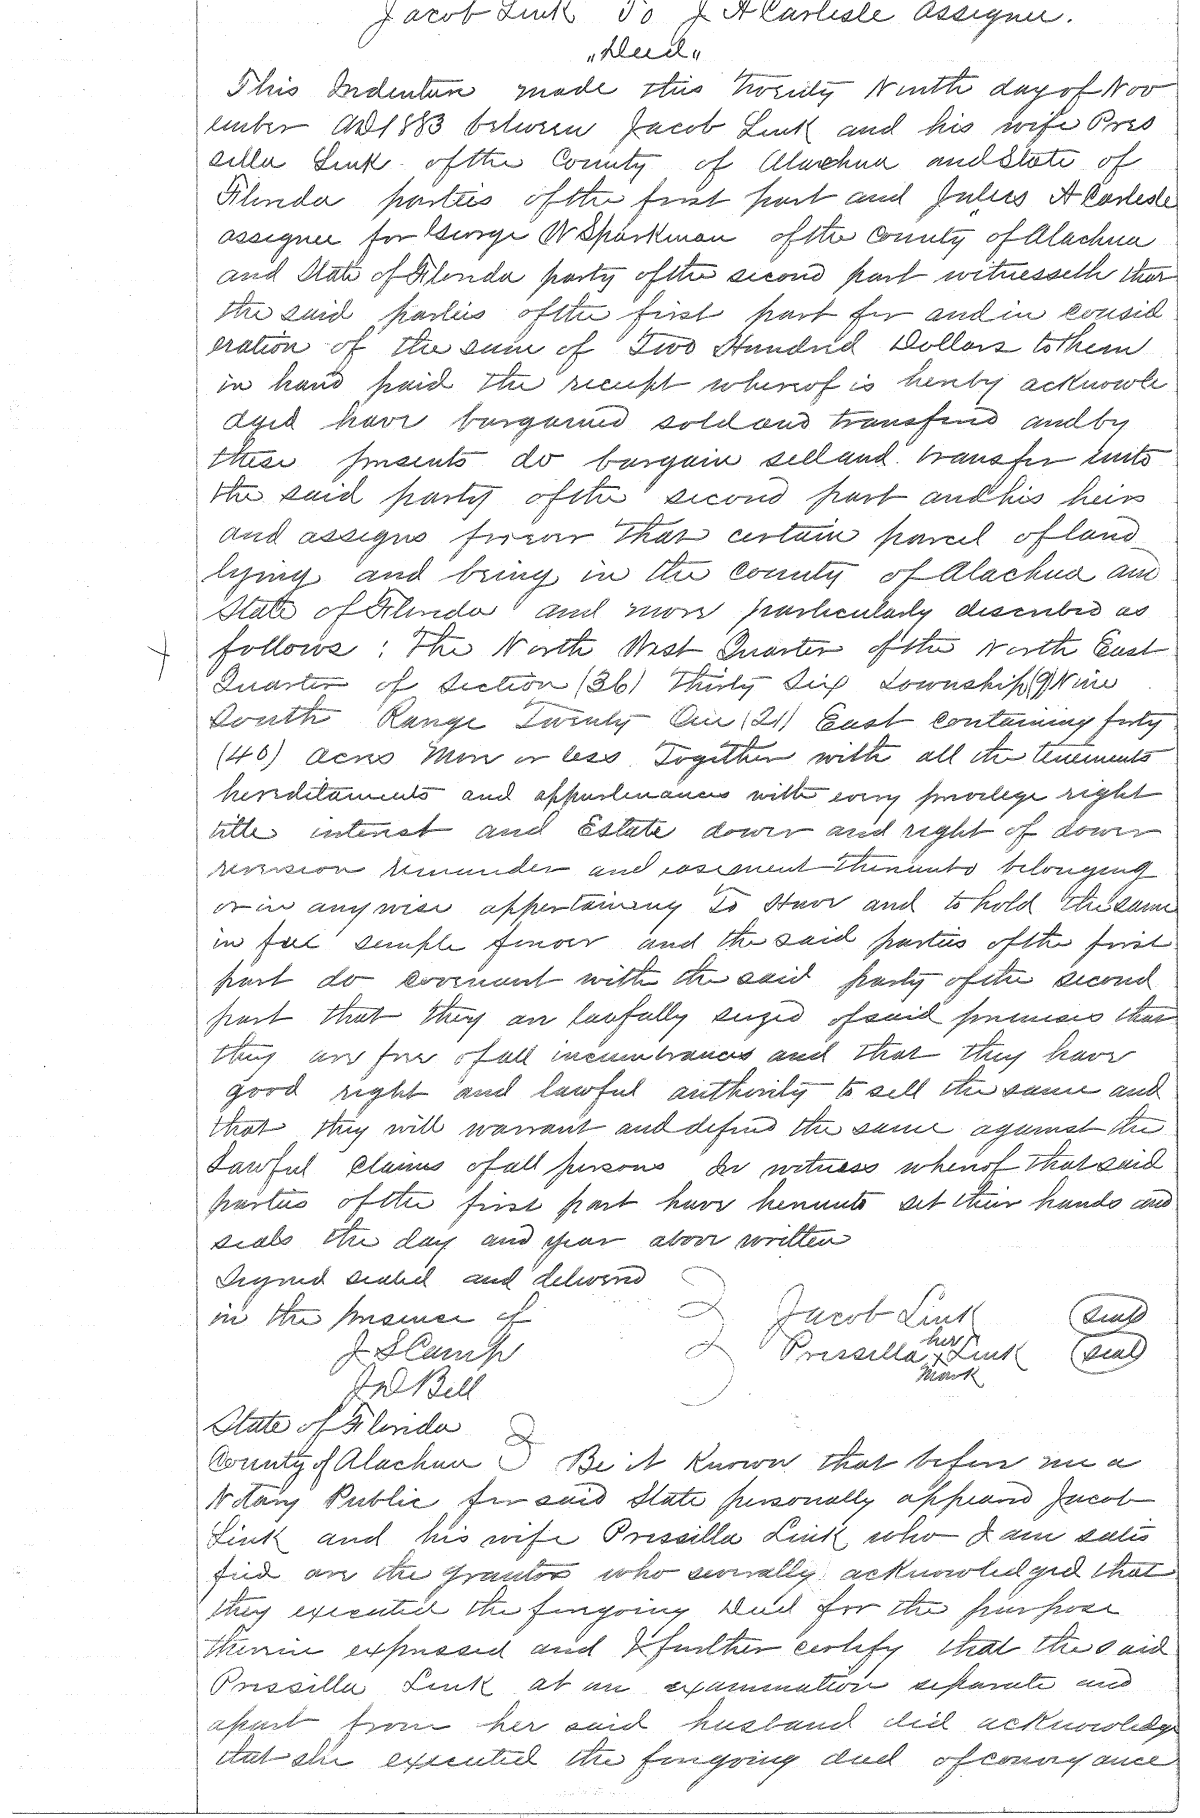 Jacob Link To J A Carlisle Assignee.
"Deed"
This Indenture made this Twenty Ninth day of Nov
ember AD 1883 between Jacob Link and his wife Pres
silla Link of the County of Alachua and State of
Florida parties of the first part and Julius A Carlisle
assignee for George W Sparkman of the County of Alachua
and State of Florida party of the second part witnesseth that
the said parties of the first part for and in consid
eration of the sum of Two Hundred Dollars to them
in hand paid the receipt whereof is hereby acknowle
dged have bargained sold and transferred and by
these presents do bargain sell and transfer unto
the said party of the second part and his heirs
and assigns forever that certain parcel of land
lying and being in the County of Alachua and
State of Florida and more particularly described as
follows : The North West Quarter of the North East
Quarter of Section (36) Thirty Six Township (9) Nine
South Range Twenty One (21) East containing forty
(40) acres more or less Together with all the tenements
hereditaments and appurtenances with every privilege right
title interest and Estate dower and right of dower
reversion remainder and easement thereunto belonging
or in anywise appertaining To Have and to hold the same
in fee simple forever and the said parties of the first
part do covenant with the said party of the second
part that they are lawfully seized of said premises that
they are free of all incumbrances and that they have
good right and lawful authority to sell the same and
that they will warrant and defend the same against the
Lawful claims of all persons In witness whereof that said
parties of the first part have hereunto set their hands and
seals the day and year above written
Signed sealed and delivered
in the presence of Jacob Link (seal)
J S Camp Pressilla her x mark Link (seal)
J D Bell
State of Florida
County of Alachua Be it Known that before me a
Notary Public for said State personally appeared Jacob
Link and his wife Pressilla Link who I am satis
fied are the grantors who severally acknowledged that
they executed the foregoing Deed for the purpose
therein expressed and I further certify that the said
Pressilla Link at an examination separate and
apart from her said husband did acknowledge
that she executed the foregoing deed of conveyance